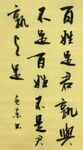 百姓足君孰與
不足百姓不足君
孰与足